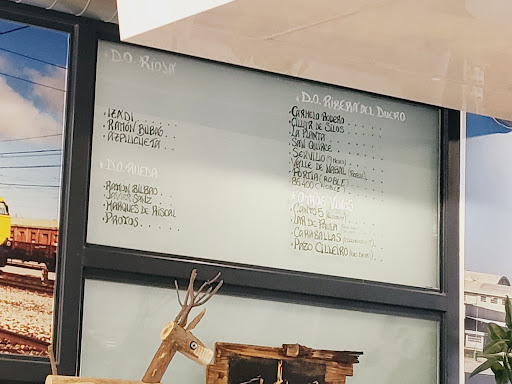 D.O. RIOJA
· IZADI
· RAMÓN BILBAO
· AZPILICUETA
D.O. RUEDA
· RAMÓN BILBAO
· JAVIER SANZ
· MARQUÉS DE RISCAL
· PROTOS
D.O. RIBERA DEL DUERO
· CARMELO RODERO
· CILLAR DE SILOS
· LA PLANTA
· SAN QUIRCE
· SERVILIO
· VALLE DE NABAL (ROBLE)
· PORTIA (ROBLE)
· 86.400 (ROBLE)
VINOS
· CANTO 5
· LAR DE PAULA
· CARABALLAS
· PAZO CILLEIRO